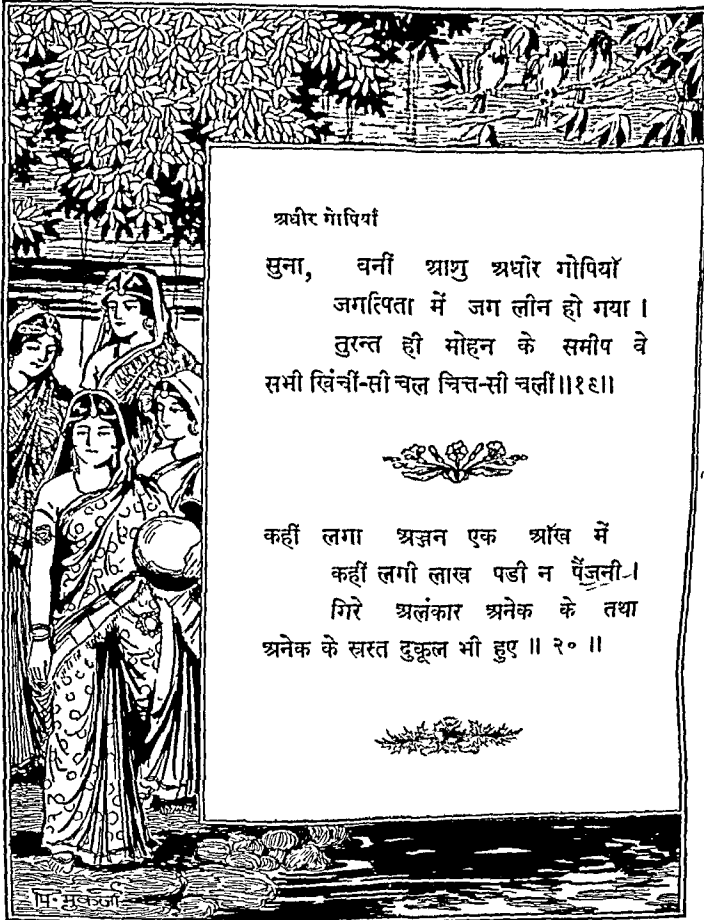 अधीर गोपियाँ
सुना, वनीं आशु अधीर गोपियाँ
जगत्पिता में जग लीन हो गया ।
तुरन्त ही मोहन के समीप वे
सभी खिंचीं-सी चल चित्त-सी चलीं॥१९॥
कहीं लगा अञ्जन एक आँख में
कहीं लगी लाख पडी न पैंजनी ।
गिरे अलंकार अनेक के तथा
अनेक के स्रस्त दुकूल भी हुए ॥ २० ॥
पि॰ मुकर्जी